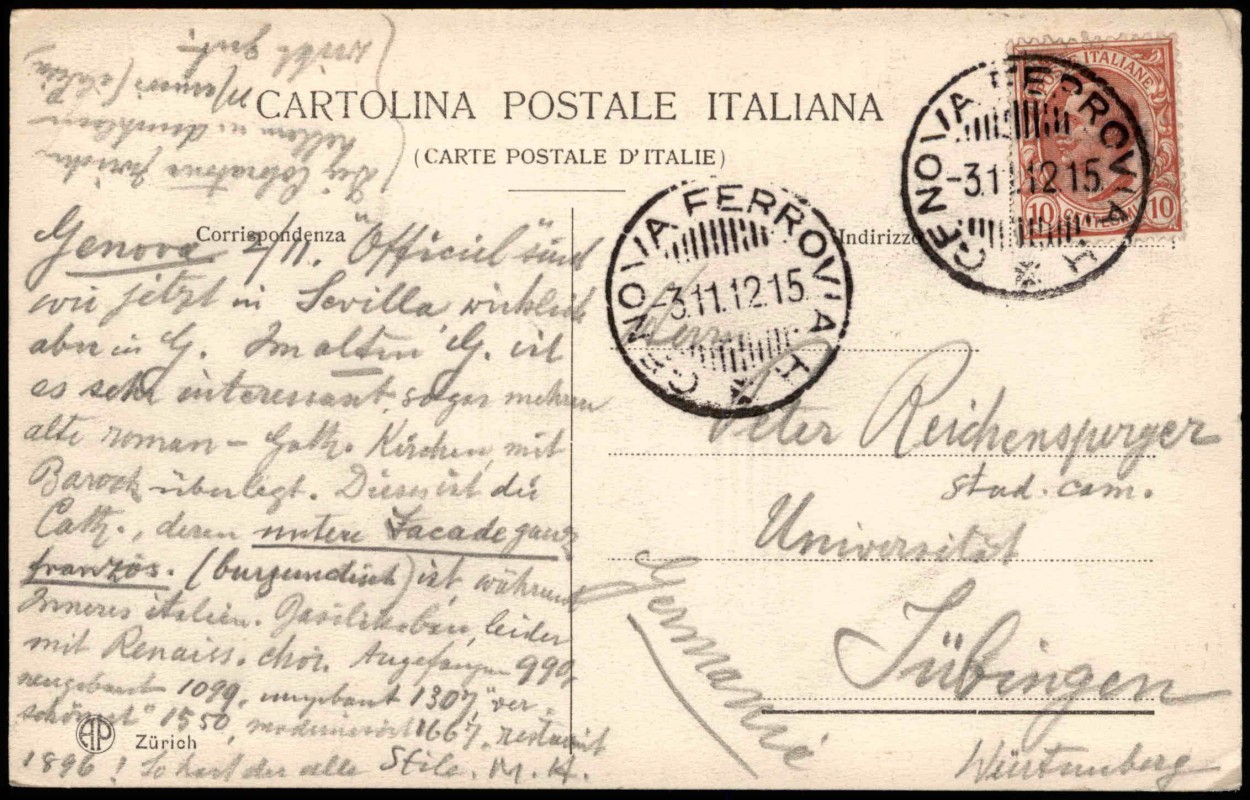 CARTOLINA POSTALE ITALIANA
(CARTE POSTALE D'ITALIE)
Corrispondenza
Indirizzo
Genova 2/11. "Officiel" sind
wir jetzt in Sevilla, wirklich
aber in G. Im alten G. ist
es sehr interessant, sogar mehrere
alte roman - Goth. Kirchen, mit
Barock überlegt. Dieses ist die
Cath., deren untere Facade ganz
französ. (burgundisch) ist, während
Inneres italien. Basilikabau, leider
mit Renaiss. chor. Angefangen 990,
neugebaut 1099, umgebaut 1307, "ver-
schönert" 1550, modernisiert 1667, restauriert
1896! So hat der alle Stile. M. H.
Die
wirkt gut.
Herrn
Peter Reichensperger
stud. cam.
Universität
Tübingen
Württemberg
Germanie
GENOVA FERROVIA
-3.11.12.15
GENOVA FERROVIA
-3.11.12.15
POSTE ITALIANE
10 10
AP Zürich